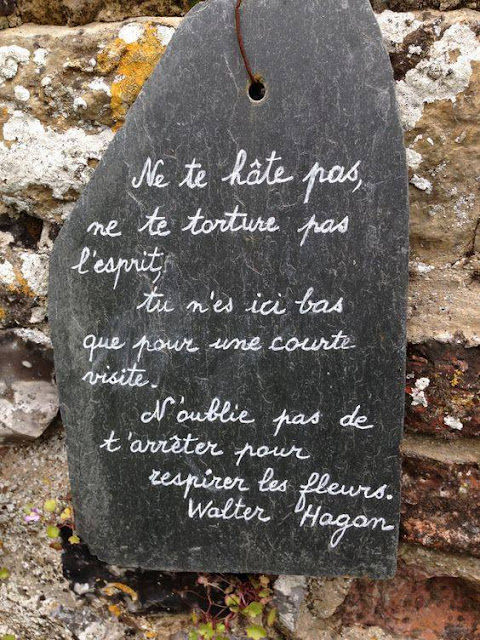 Ne te hâte pas,
ne te torture pas
l'esprit,
tu n'es ici bas
que pour une courte
visite.
N'oublie pas de
t'arrêter pour
respirer les fleurs.
Walter Hagan